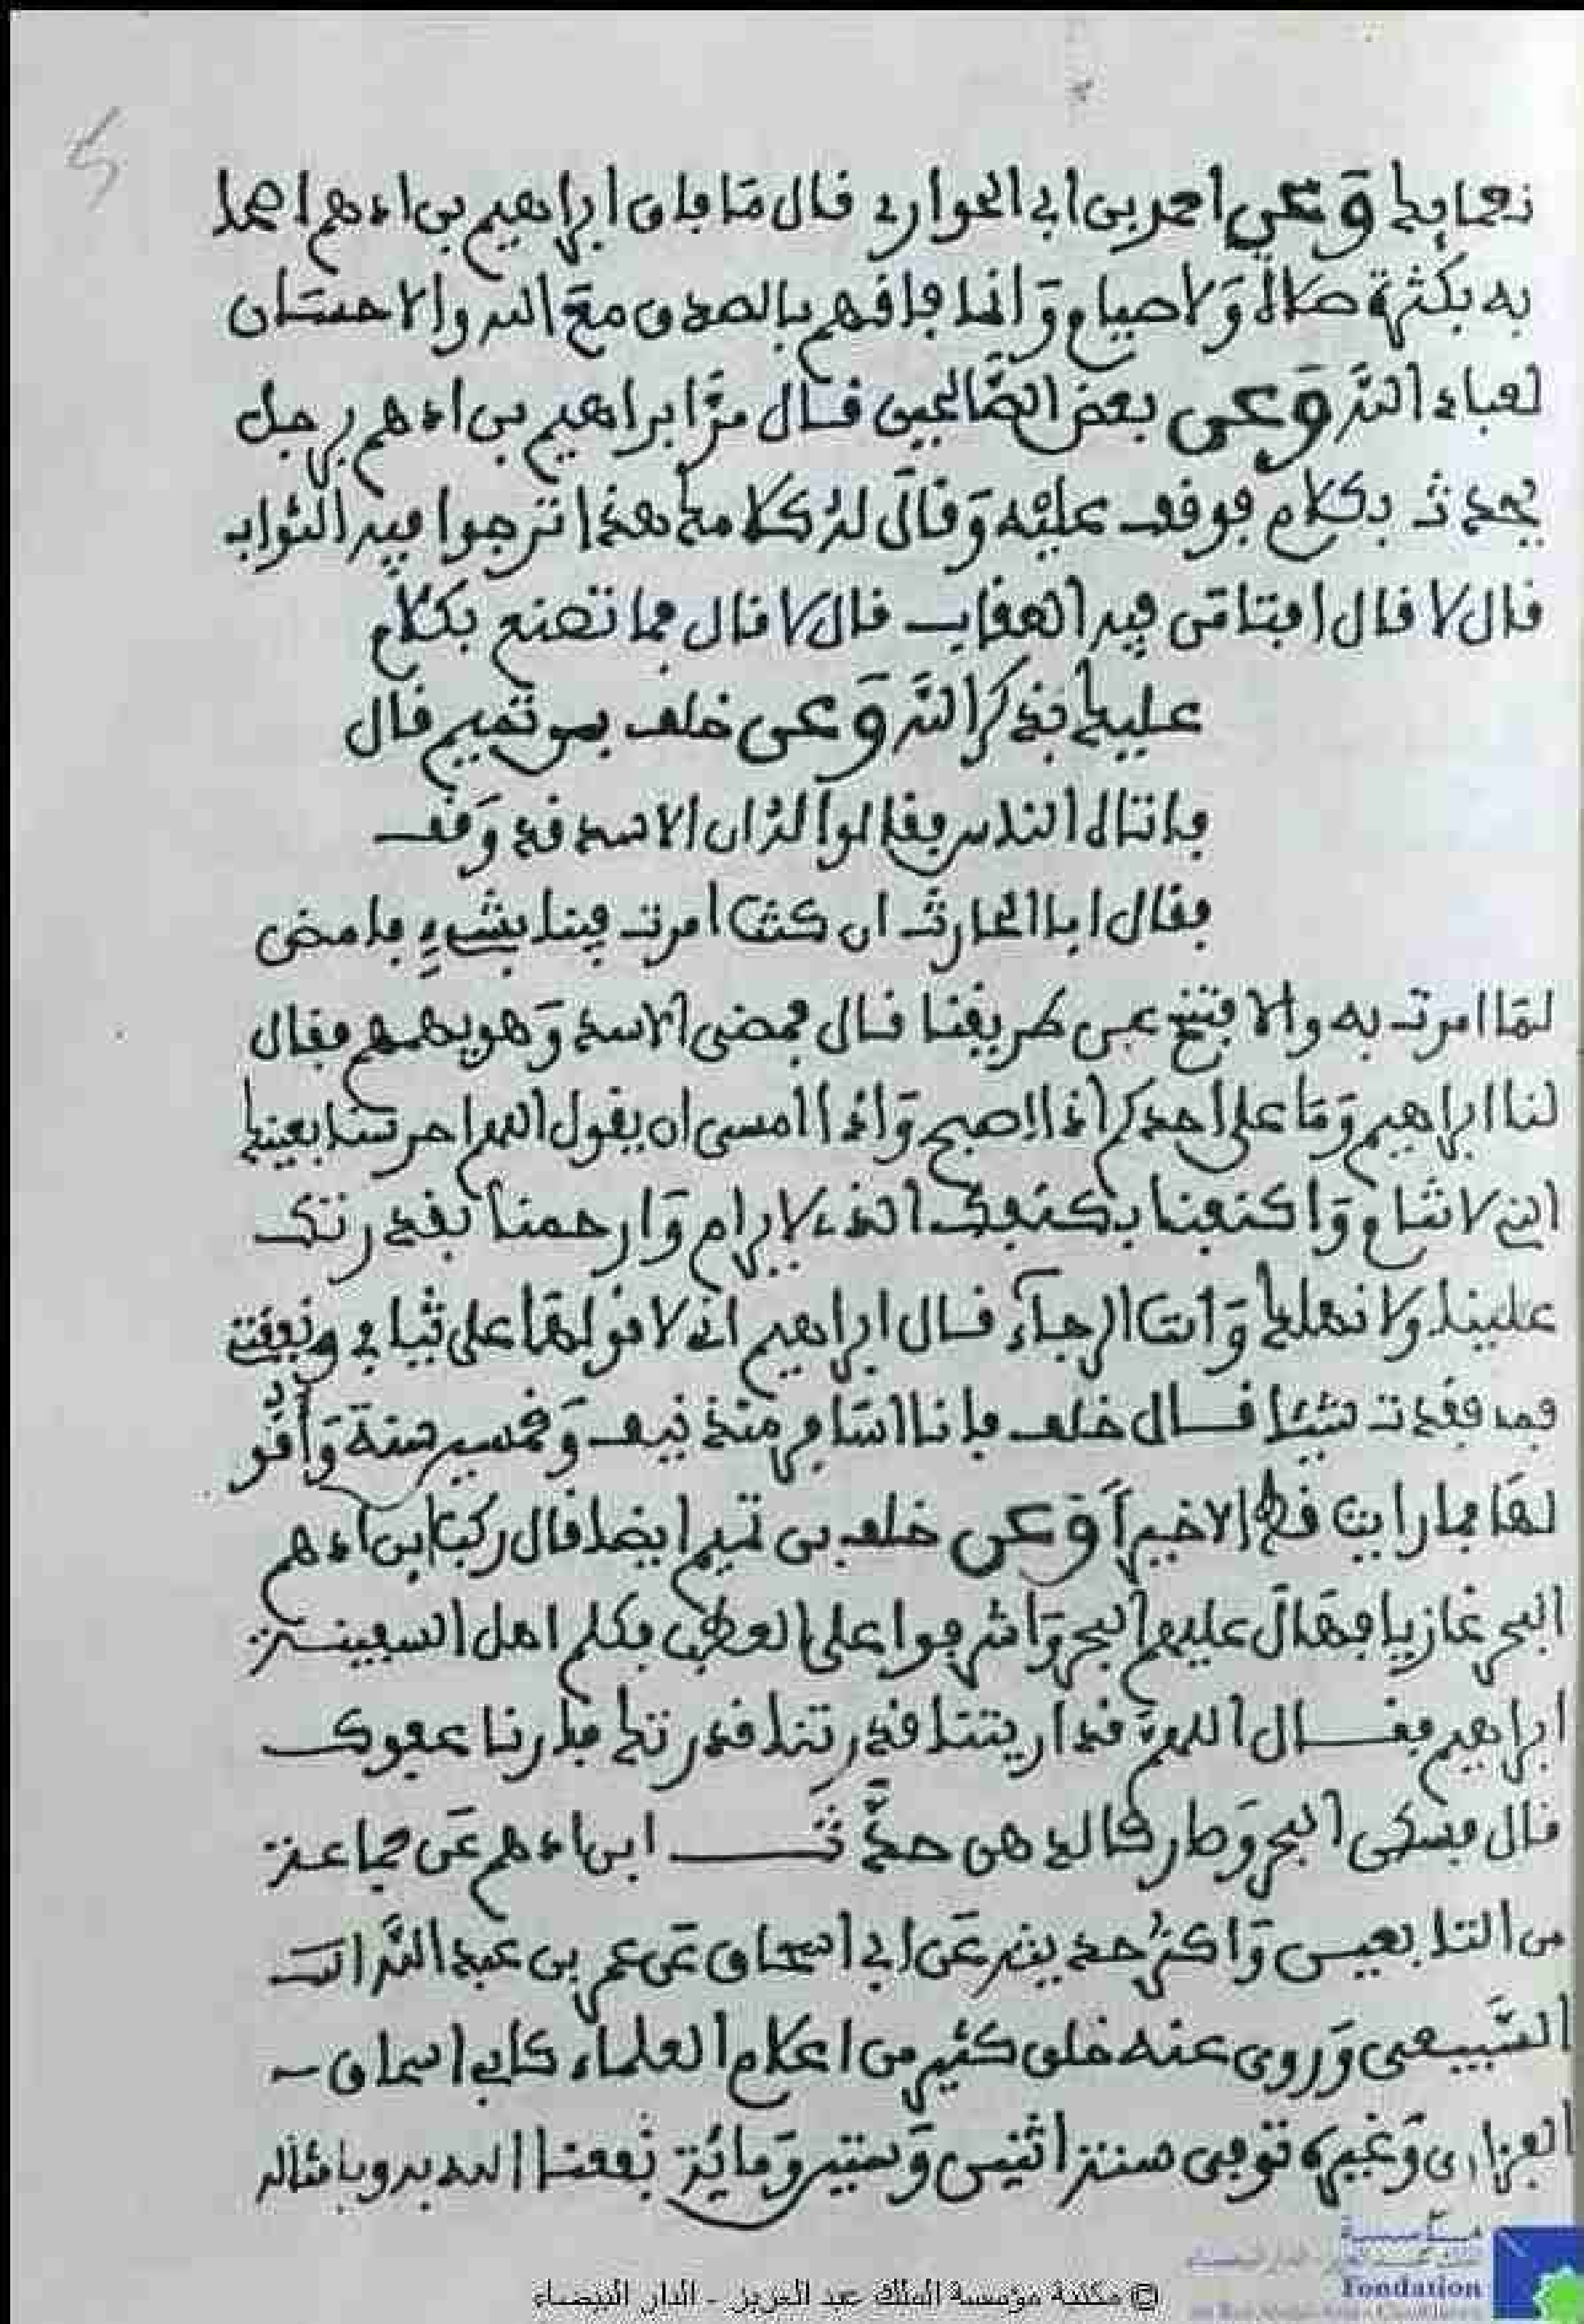 نعمايك وعن احمد بن ابي الحواري قال ما فاق ابراهيم بن ادهم اصحا
به بكثرة صلاة ولا صيام وانما فاقهم بالصدق مع الله والاحسان
لعباد الله وعن بعض الصالحين قال مر ابراهيم بن ادهم برجل
يحدث بكلام فوقف عليه وقال له كلامك هذا ترجوا فيه الثواب
قال لا قال افتامن فيه العقاب قال لا قال فما تصنع بكلام
عليك بذكر الله وعن خلف بن تميم قال
فاتاه الناس فقالوا له ان الاسد قد وقف
فقال ابا الحارث ان كنت امرت فينا بشيء فامض
لما امرت به والا فتنح عن طريقنا قال فمضى الاسد وهو يهمهم فقال
لنا ابراهيم وما على احدكم اذا اصبح واذا امسى ان يقول اللهم احرسنا بعينك
التي لا تنام واكنفنا بكنفك الذي لا يرام وارحمنا بقدرتك
علينا ولا نهلك وانت الرجاء قال ابراهيم اني لاقولها على ثيابي ونفقتي
فما فقدت شيئا قال خلف فانا اسافر منذ نيف وخمسين سنة واقو
لها فما رايت قط الا خيرا وعن خلف بن تميم ايضا قال ركب ابن ادهم
البحر غازيا فهال عليهم البحر واشرفوا على العطب فكلم اهل السفينة
ابراهيم فقال اللهم قد اريتنا قدرتك فارنا عفوك
قال فسكن البحر وصار كالدهن حدث ابن ادهم عن جماعة
من التابعين واكثر حديثه عن ابي اسحاق عمر بن عبد الله
السبيعي وروى عنه خلق كثير من اعلام العلماء كابي اسحاق
الفزاري وغيره توفي سنة اثنين وستين ومائة نفعنا الله به وبامثاله
مؤسسة
Fondation
© مكتبة مؤسسة الملك عبد العزيز - الدار البيضاء